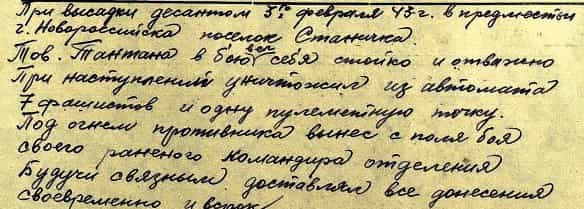 При высадки десантом 3го февраля 43 г. в предместьи
г. Новороссийска поселок Станичка.
Тов. Тантана в бою вел себя стойко и отважно
При наступлении уничтожил из автомата
7 фашистов и одну пулеметную точку.
Под огнем противника вынес с поля боя
своего раненого командира отделения
Будучи связным доставлял все донесения
своевременно и в срок